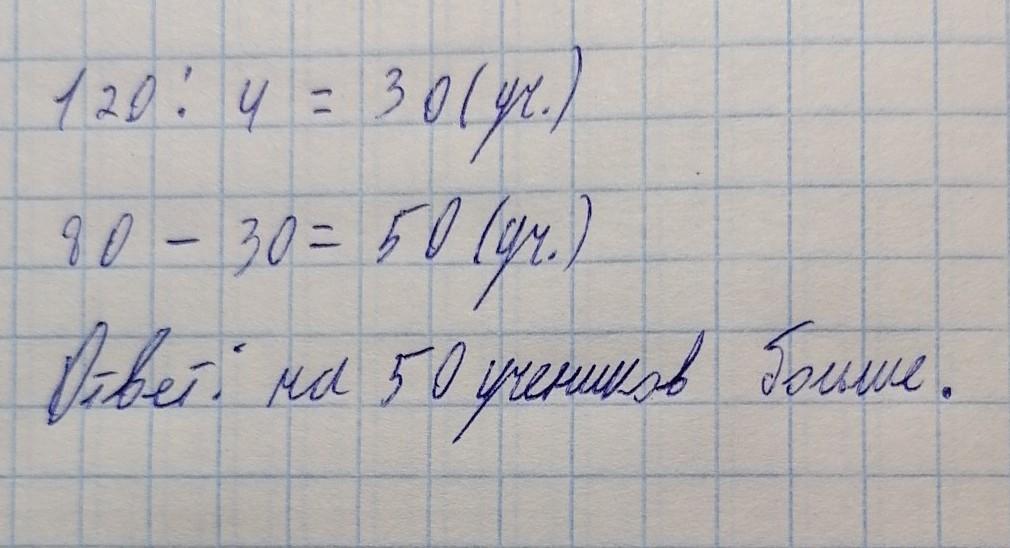 120 : 4 = 30 (уч.)
80 - 30 = 50 (уч.)
Ответ: на 50 учеников больше.